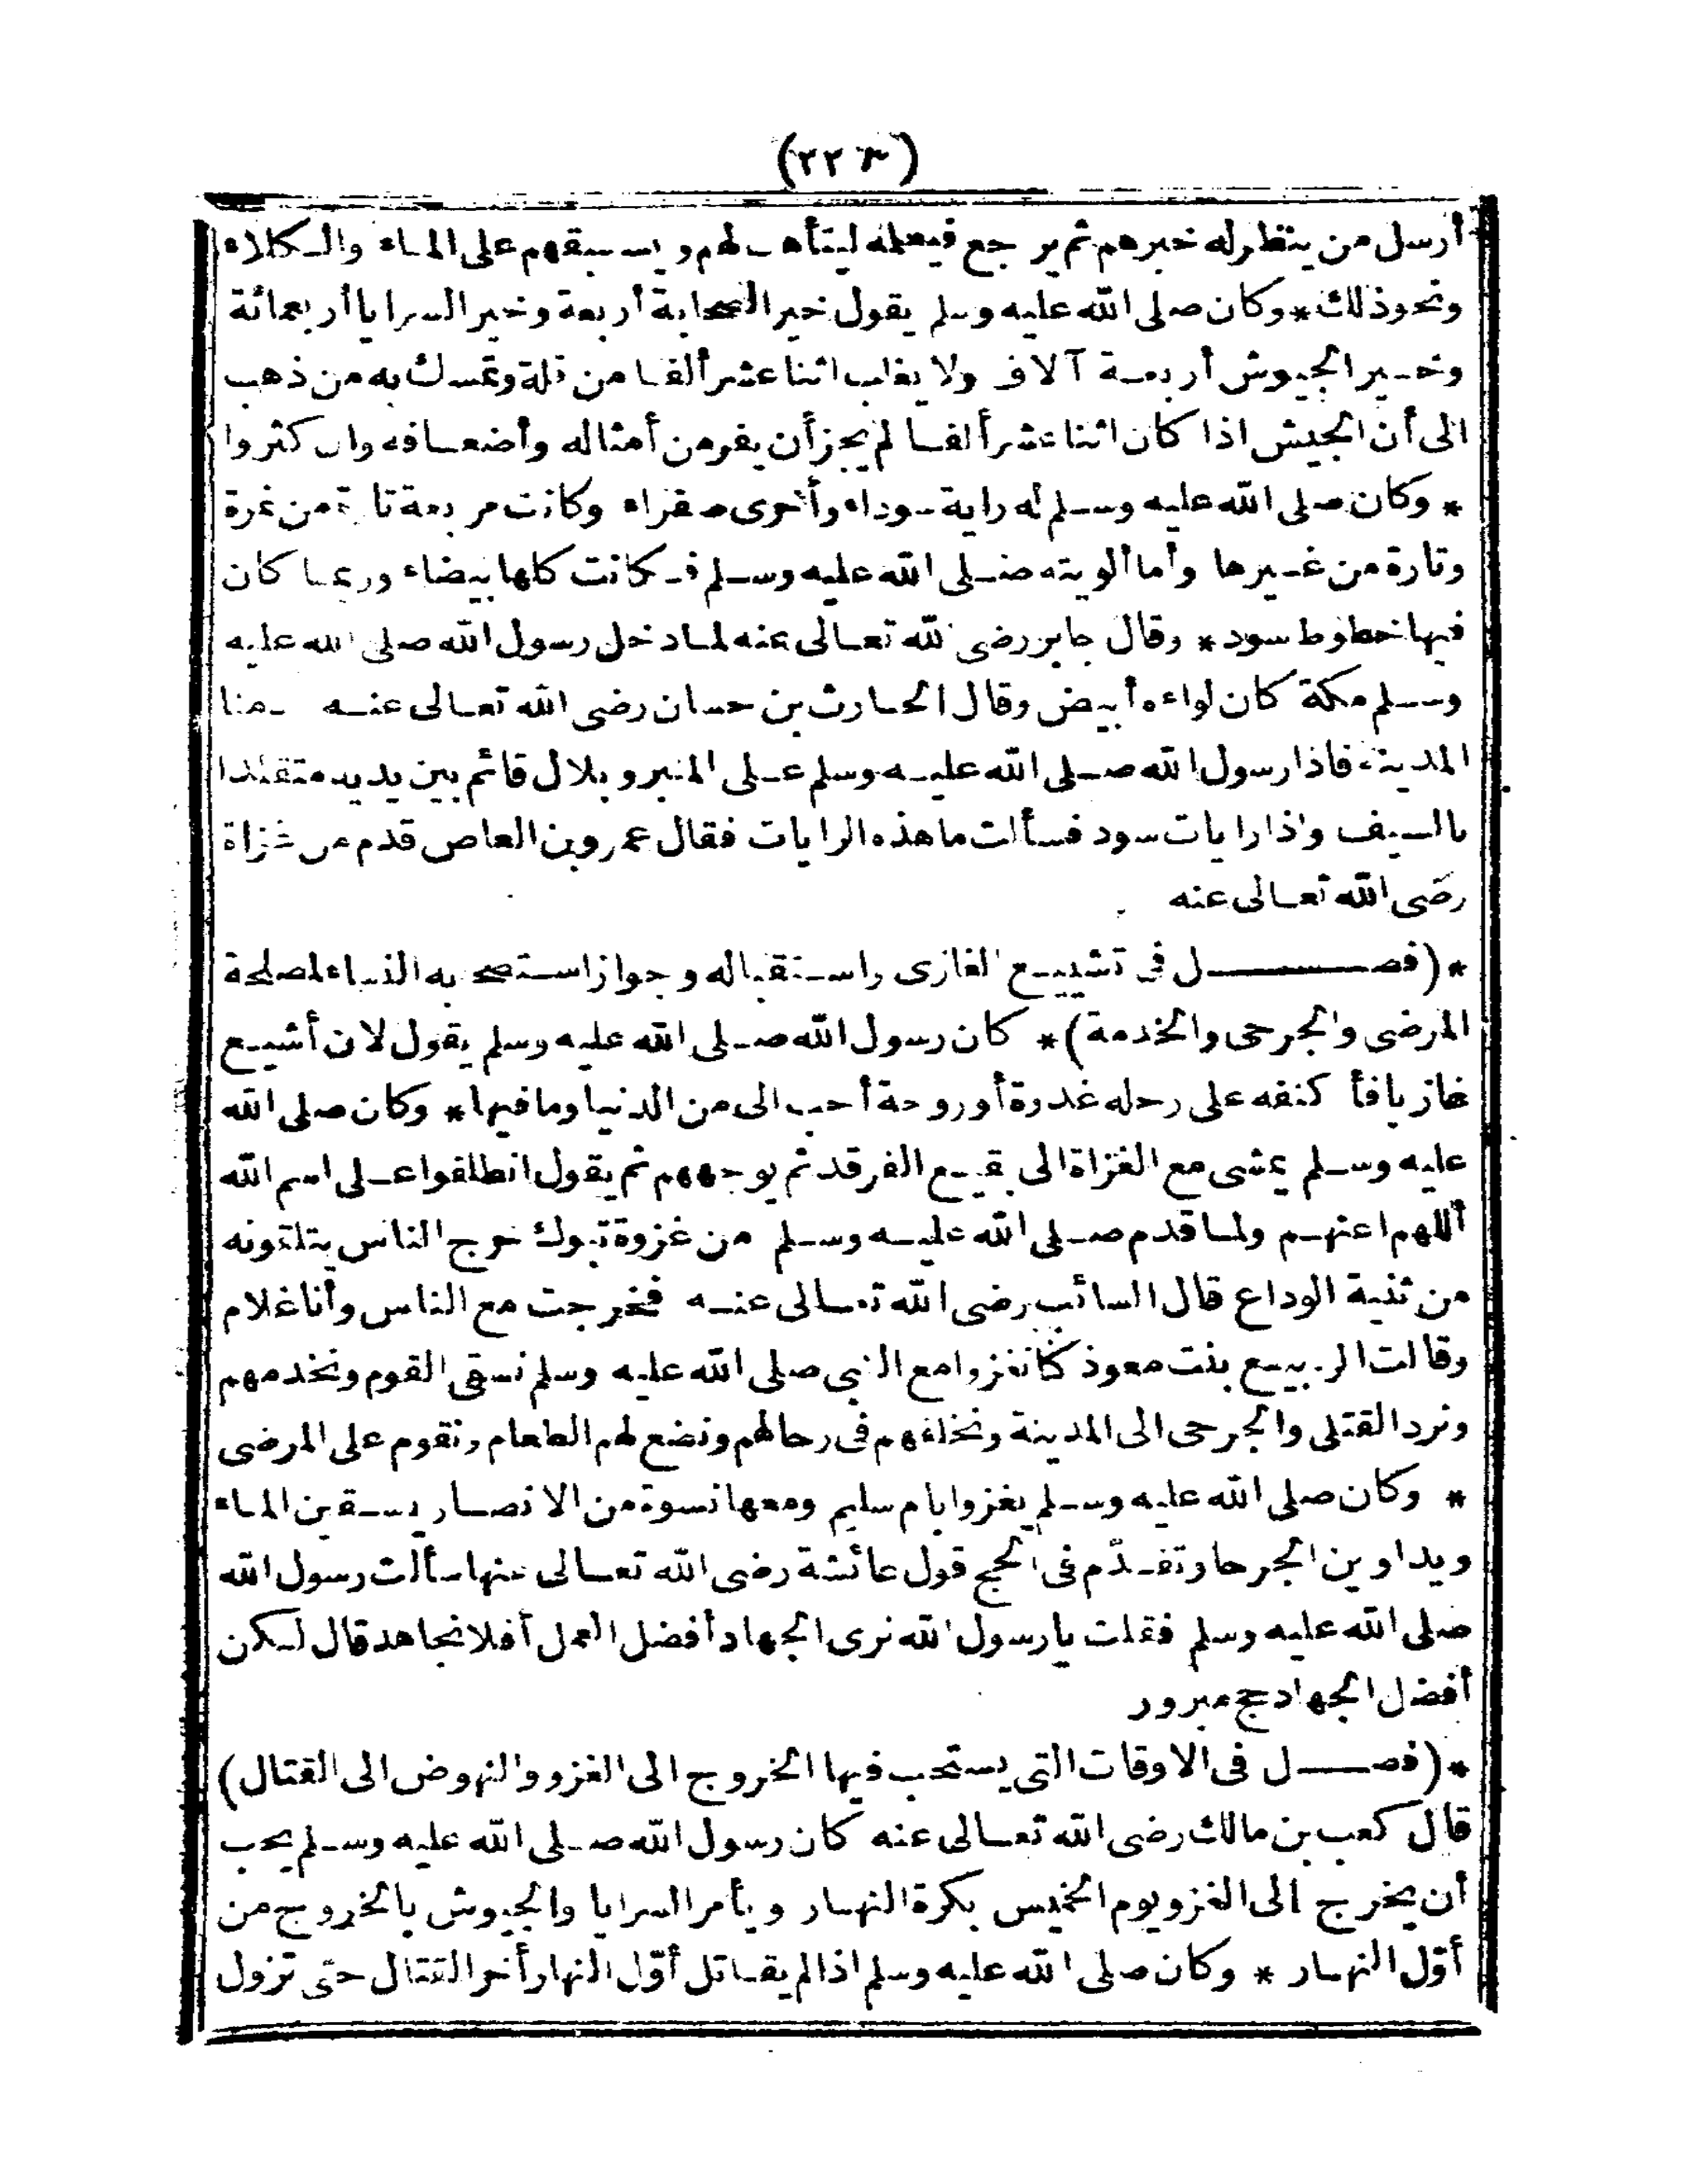 (٢٢٣)
أرسل من ينظر له خبرهم ثم يرجع فيعلمه ليتأهب لهم ويسبقهم على الماء والكلاء
ونحو ذلك * وكان صلى الله عليه وسلم يقول خير الصحابة أربعة وخير السرايا أربعمائة
وخير الجيوش أربعة آلاف ولا يغلب اثنا عشر ألفا من قلة وتمسك به من ذهب
الى أن الجيش اذا كان اثنا عشر ألفا لم يجز أن يفر من أمثاله وأضعافه وان كثروا
* وكان صلى الله عليه وسلم له راية سوداء وأخرى صفراء وكانت مربعة تارة من نمرة
وتارة من غيرها وأما ألويته صلى الله عليه وسلم فكانت كلها بيضاء وربما كان
فيها خطوط سود * وقال جابر رضى الله تعالى عنه لما دخل رسول الله صلى الله عليه
وسلم مكة كان لواءه أبيض وقال الحارث بن حسان رضى الله تعالى عنه
المدينة فاذا رسول الله صلى الله عليه وسلم على المنبر وبلال قائم بين يديه متقلدا
بالسيف واذا رايات سود فسألت ما هذه الرايات فقال عمرو بن العاص قدم من غزاة
رضى الله تعالى عنه
* (فصل فى تشييع الغازى واستقباله وجواز استصحابه النساء لمصلحة
المرضى والجرحى والخدمة) * كان رسول الله صلى الله عليه وسلم يقول لان أشيع
غازيا فأ كنفه على رحله غدوة أو روحة أحب الى من الدنيا وما فيها * وكان صلى الله
عليه وسلم يمشى مع الغزاة الى بقيع الغرقد ثم يوجههم ثم يقول انطلقوا على اسم الله
أللهم اعنهم ولما قدم صلى الله عليه وسلم من غزوة تبوك خرج الناس يتلقونه
من ثنية الوداع قال السائب رضى الله تعالى عنه فخرجت مع الناس وأنا غلام
وقالت الربيع بنت معوذ كنا نغزوا مع النبى صلى الله عليه وسلم نسقى القوم ونخدمهم
ونرد القتلى والجرحى الى المدينة ونخلفهم فى رحالهم ونضع لهم الطعام ونقوم على المرضى
* وكان صلى الله عليه وسلم يغزوا بام سليم ومعها نسوة من الانصار يسقين الماء
ويداوين الجرحا وتقدّم فى الحج قول عائشة رضى الله تعالى عنها سألت رسول الله
صلى الله عليه وسلم فقلت يا رسول الله نرى الجهاد أفضل العمل أفلا نجاهد قال لكن
أفضل الجهاد حج مبرور
* (فصل فى الاوقات التى يستحب فيها الخروج الى الغزو والنهوض الى القتال)
قال كعب بن مالك رضى الله تعالى عنه كان رسول الله صلى الله عليه وسلم يحب
أن يخرج الى الغزو يوم الخميس بكرة النهار ويأمر السرايا والجيوش بالخروج من
أوّل النهار * وكان صلى الله عليه وسلم اذا لم يقاتل أوّل النهار أخر القتال حتى تزول